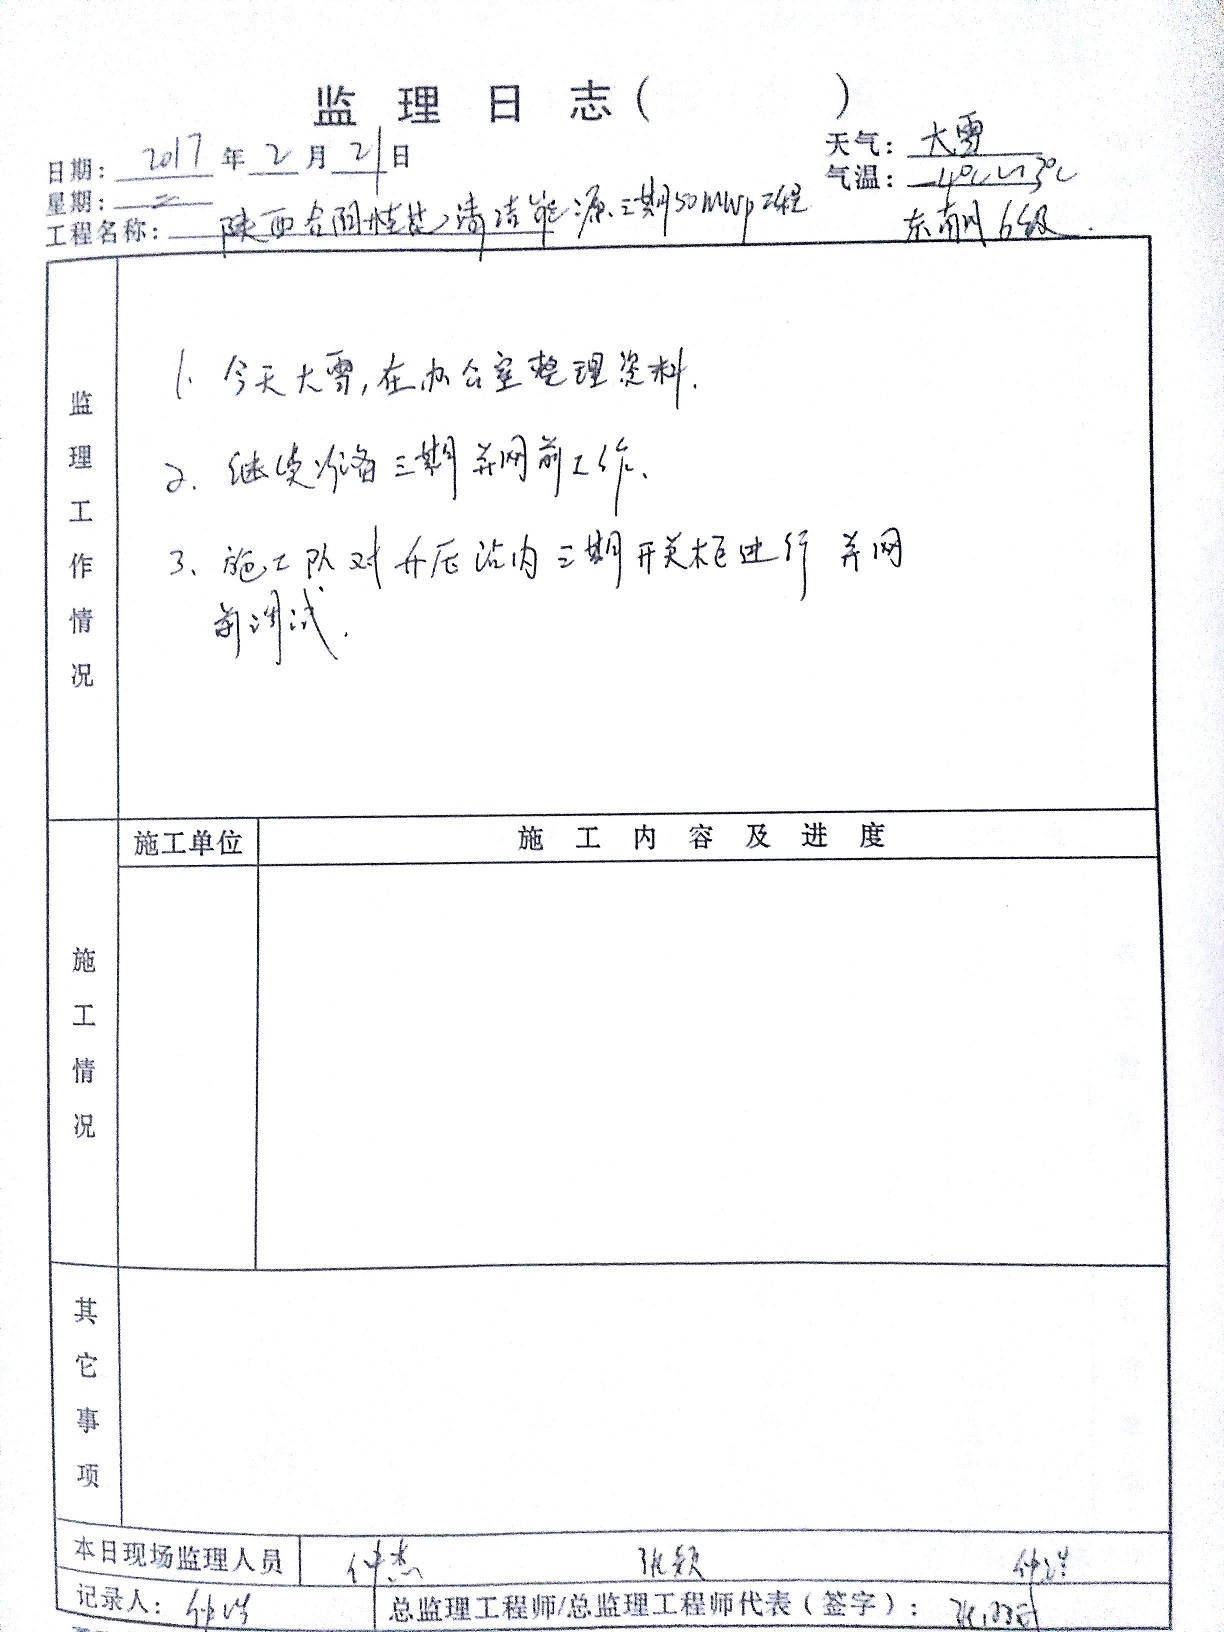 监 理 日 志 (          )
日期: 2017 年 2 月 21 日
天气: 大雪
星期: 二
气温: -4℃~3℃
工程名称: 陕西合阳 清洁能源三期50MWp工程
东南风6级.
监理工作情况
1. 今天大雪,在办公室整理资料.
2. 继续准备三期并网前工作.
3. 施工队对升压站内三期开关柜进行并网
前调试.
施工单位 施 工 内 容 及 进 度
施工情况
其它事项
本日现场监理人员 仲杰 张颖 仲洪
记录人: 仲洪 总监理工程师/总监理工程师代表(签字):